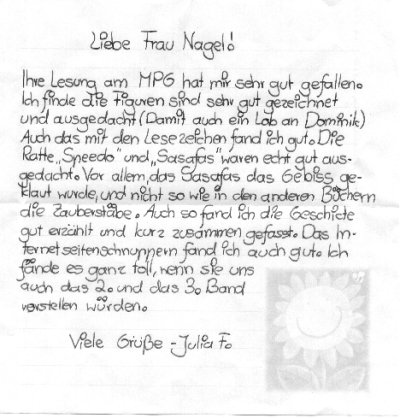 Liebe Frau Nagel!
Ihre Lesung am MPG hat mir sehr gut gefallen.
Ich finde die Figuren sind sehr gut gezeichnet
und ausgedacht (Damit auch ein Lob an Dominik)
Auch das mit den Lesezeichen fand ich gut. Die
Ratte „Speedo" und „Sasafas" waren echt gut aus-
gedacht. Vor allem, das Sasafas das Gebiss ge-
klaut wurde, und nicht so wie in den anderen Büchern
die Zauberstäbe. Auch so fand ich die Geschicte
gut erzählt und kurz zusammen gefasst. Das In-
ternetseitenschnuppern fand ich auch gut. Ich
fände es ganz toll, wenn sie uns
auch das 2. und das 3. Band
vorstellen würden.
Viele Grüße - Julia F.